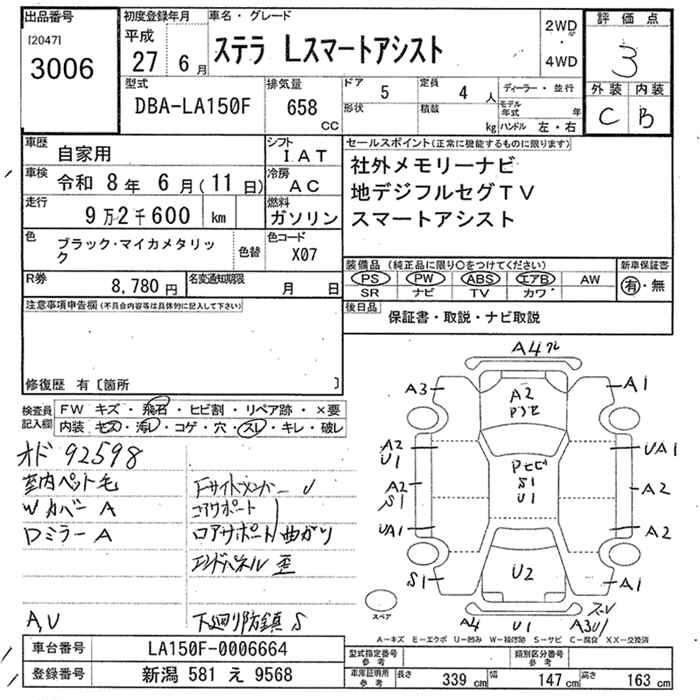 出品番号
[2047]
3006
初度登録年月
平成
27 6月
車名・グレード
ステラ Lスマートアシスト
2WD
・
4WD
評価点
3
外装 内装
C B
型式
DBA-LA150F
排気量
658
CC
ドア
5
定員
4 人
形状
積載
kg
ディーラー・並行
モデル年式 年
ハンドル 左・右
車歴
自家用
シフト
IAT
車検
令和 8年 6月(11日)
冷房
AC
走行
9万2千600 km
燃料
ガソリン
色
ブラック・マイカメタリック
色替
色コード
X07
R券
8,780円
名変通知期限
月 日
セールスポイント(正常に機能するものに限ります)
社外メモリーナビ
地デジフルセグTV
スマートアシスト
装備品 (純正品に限り○をつけてください)
PS PW ABS エアB AW
SR ナビ TV カワ
新車保証書
有・無
後日品
保証書・取説・ナビ取説
注意事項申告欄(不具合内容等は具体的に記入して下さい)
修復歴 有〔箇所 〕
検査員記入欄
FW キズ・飛石・ヒビ割・リペア跡・×要
内装 キズ・汚れ・コゲ・穴・スレ・キレ・破レ
オド 92598
室内ペット毛
Wカバー A
Dミラー A
A,U
Fサイドメンバー U
コアサポート
ロアサポート 曲がり
エンドパネル 歪
下廻り防錆 S
A4
A3
A1
A2
A2
U1
UA1
A2
S1
S1
U1
A2
UA1
A2
S1
U2
A1
A4
U1
A3U1
スペア
A−キズ E−エクボ U−凹み W−補修跡 S−サビ C−腐食 XX−交換済
車台番号
LA150F-0006664
登録番号
新潟 581 え 9568
型式指定番号
参考
類別区分番号
参考
車庫証明用
参考
長さ 339 cm
幅 147 cm
高さ 163 cm